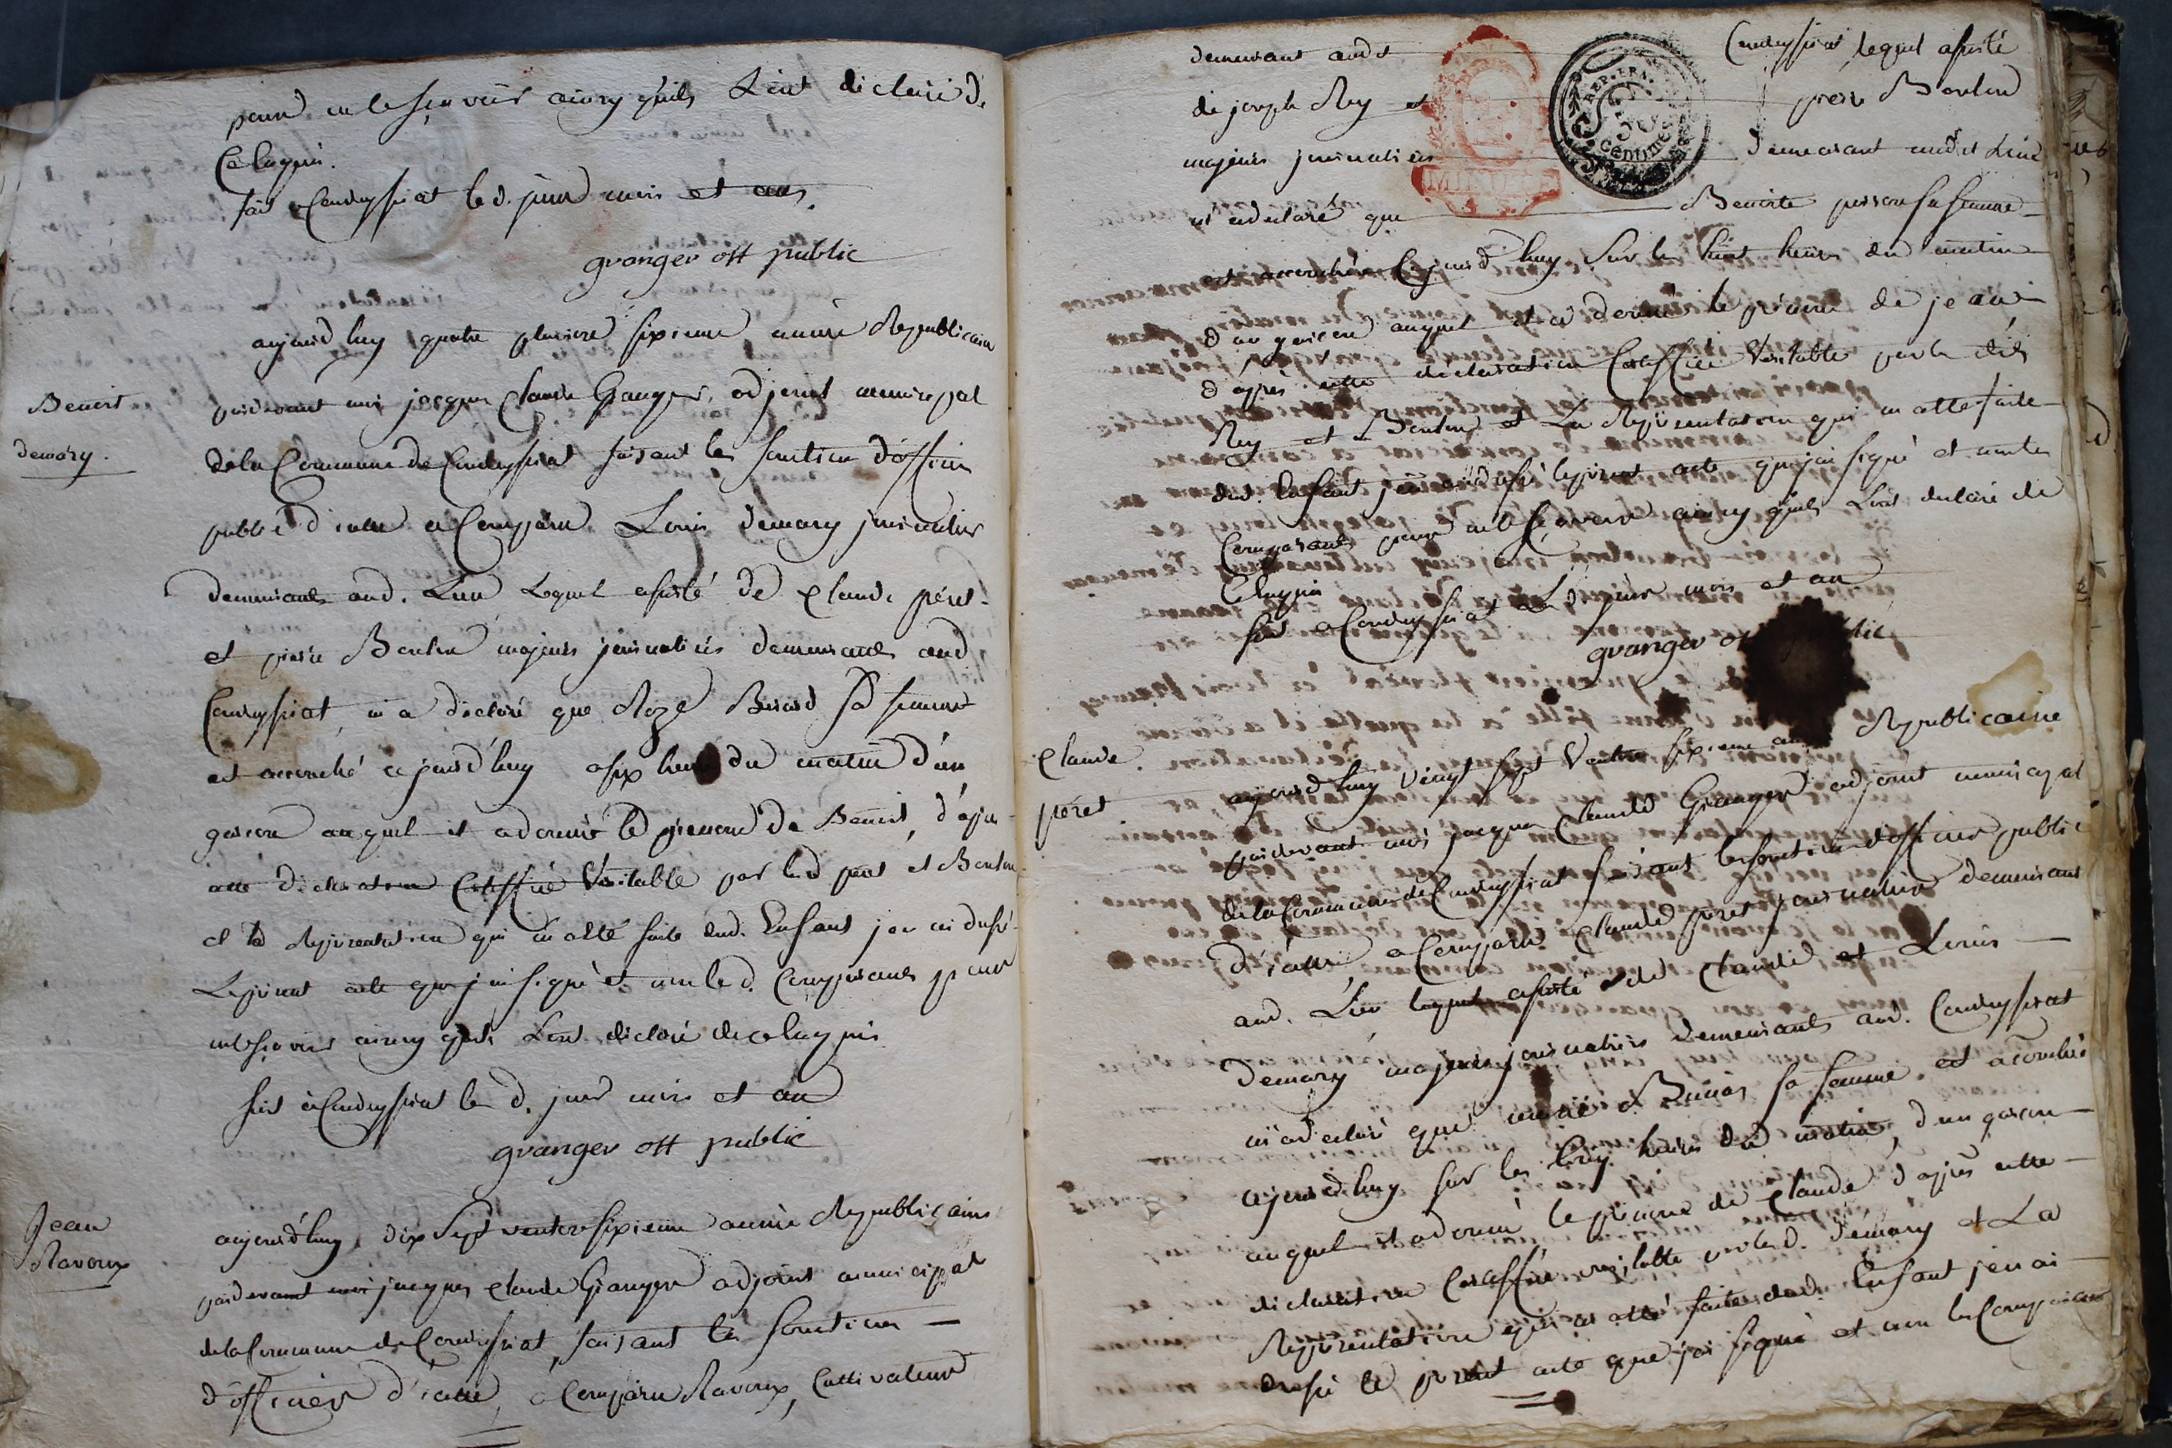 pour ne le sçavoir ainsy quils L'ont déclaré de
Ce Enquis.
fait a Condeyssiat le d. jour mois et an.
granger off public
aujourd huy quatre pluviose sixieme année Republicaine
Benoit
demary.
pardevant moi jacques Claude Granger, adjoint municipal
de la Commune de Condeyssiat faisant les fonction d'officier
public d'icelle a Comparu Louis demary journalier
demeurant aud. Lieu Lequel assisté de Claude péret
et pierre Boulon majeurs journaliers demeurants aud
Condeyssiat, m'a déclaré que Roze Berard Sa femme
est accouché ce jourd'huy a six heures du matin d'un
garcon auquel il a donné le prenom de Benoit, d'après
cette déclaration Certiffié Véritable par les d péret et Boulon
et la Représentation qui m'a été faite dud. Enfant j'en ai dressé
Le présent acte que j'ai signé et non les d. Comparants pour
ne le sçavoir ainsy quils L'ont déclaré de ce Enquis
fait à Condeyssiat les d. jour mois et an
granger off public
Jean
Ravoux
aujourd'huy dix Sept ventose sixieme année Republicaine
pardevant moi jacques Claude Granger adjoint municipal
de la Commune de Condeyssiat, faisant les fonction
d'officier d'icelle, a Comparu Ravoux, Cultivateur
demeurant aud Condeyssiat lequel assisté
de joseph Rey et pierre Boulon
majeurs journaliers demeurant audit Lieu
m'a declaré que Benoite sa femme
est accouchée Cejourd'huy Sur les huit heures du matin
d'un garcon auquel il a donné le prénom de jean
d'apres cette declaration Certiffié Veritable par les dits
Rey et Boulon et La Representation qui m'a été faite
dud Enfant j'en ai dressé le present acte que j'ai signé et non les
Comparants pour ne le sçavoir ainsy quils L'ont declaré de
Ce Enquis
fait a Condeyssiat Les d jour mois et an
granger off public
Claude
péret
aujourd'huy Vingt sept Ventose sixieme année Republicaine
pardevant moi jacques Claude Granger adjoint municipal
de la Commune de Condeyssiat faisant les fonction d'officier public
d'icelle a Comparu Claude péret journalier demeurant
aud. Lieu lequel assisté de Claude et Louis
Demary majeurs journaliers demeurants aud. Condeyssiat
m'a declaré que sa femme est accouchée
aujourd'huy sur les heures du matin, d'un garcon
auquel il a donné le prenom de Claude d'après cette
declaration Certiffié veritable par les d. demary et La
Representation qui m'a été faite dud. Enfant j'en ai
dressé le present acte que j'ai signé et non les Comparants
REP. FRA.
50
Centimes